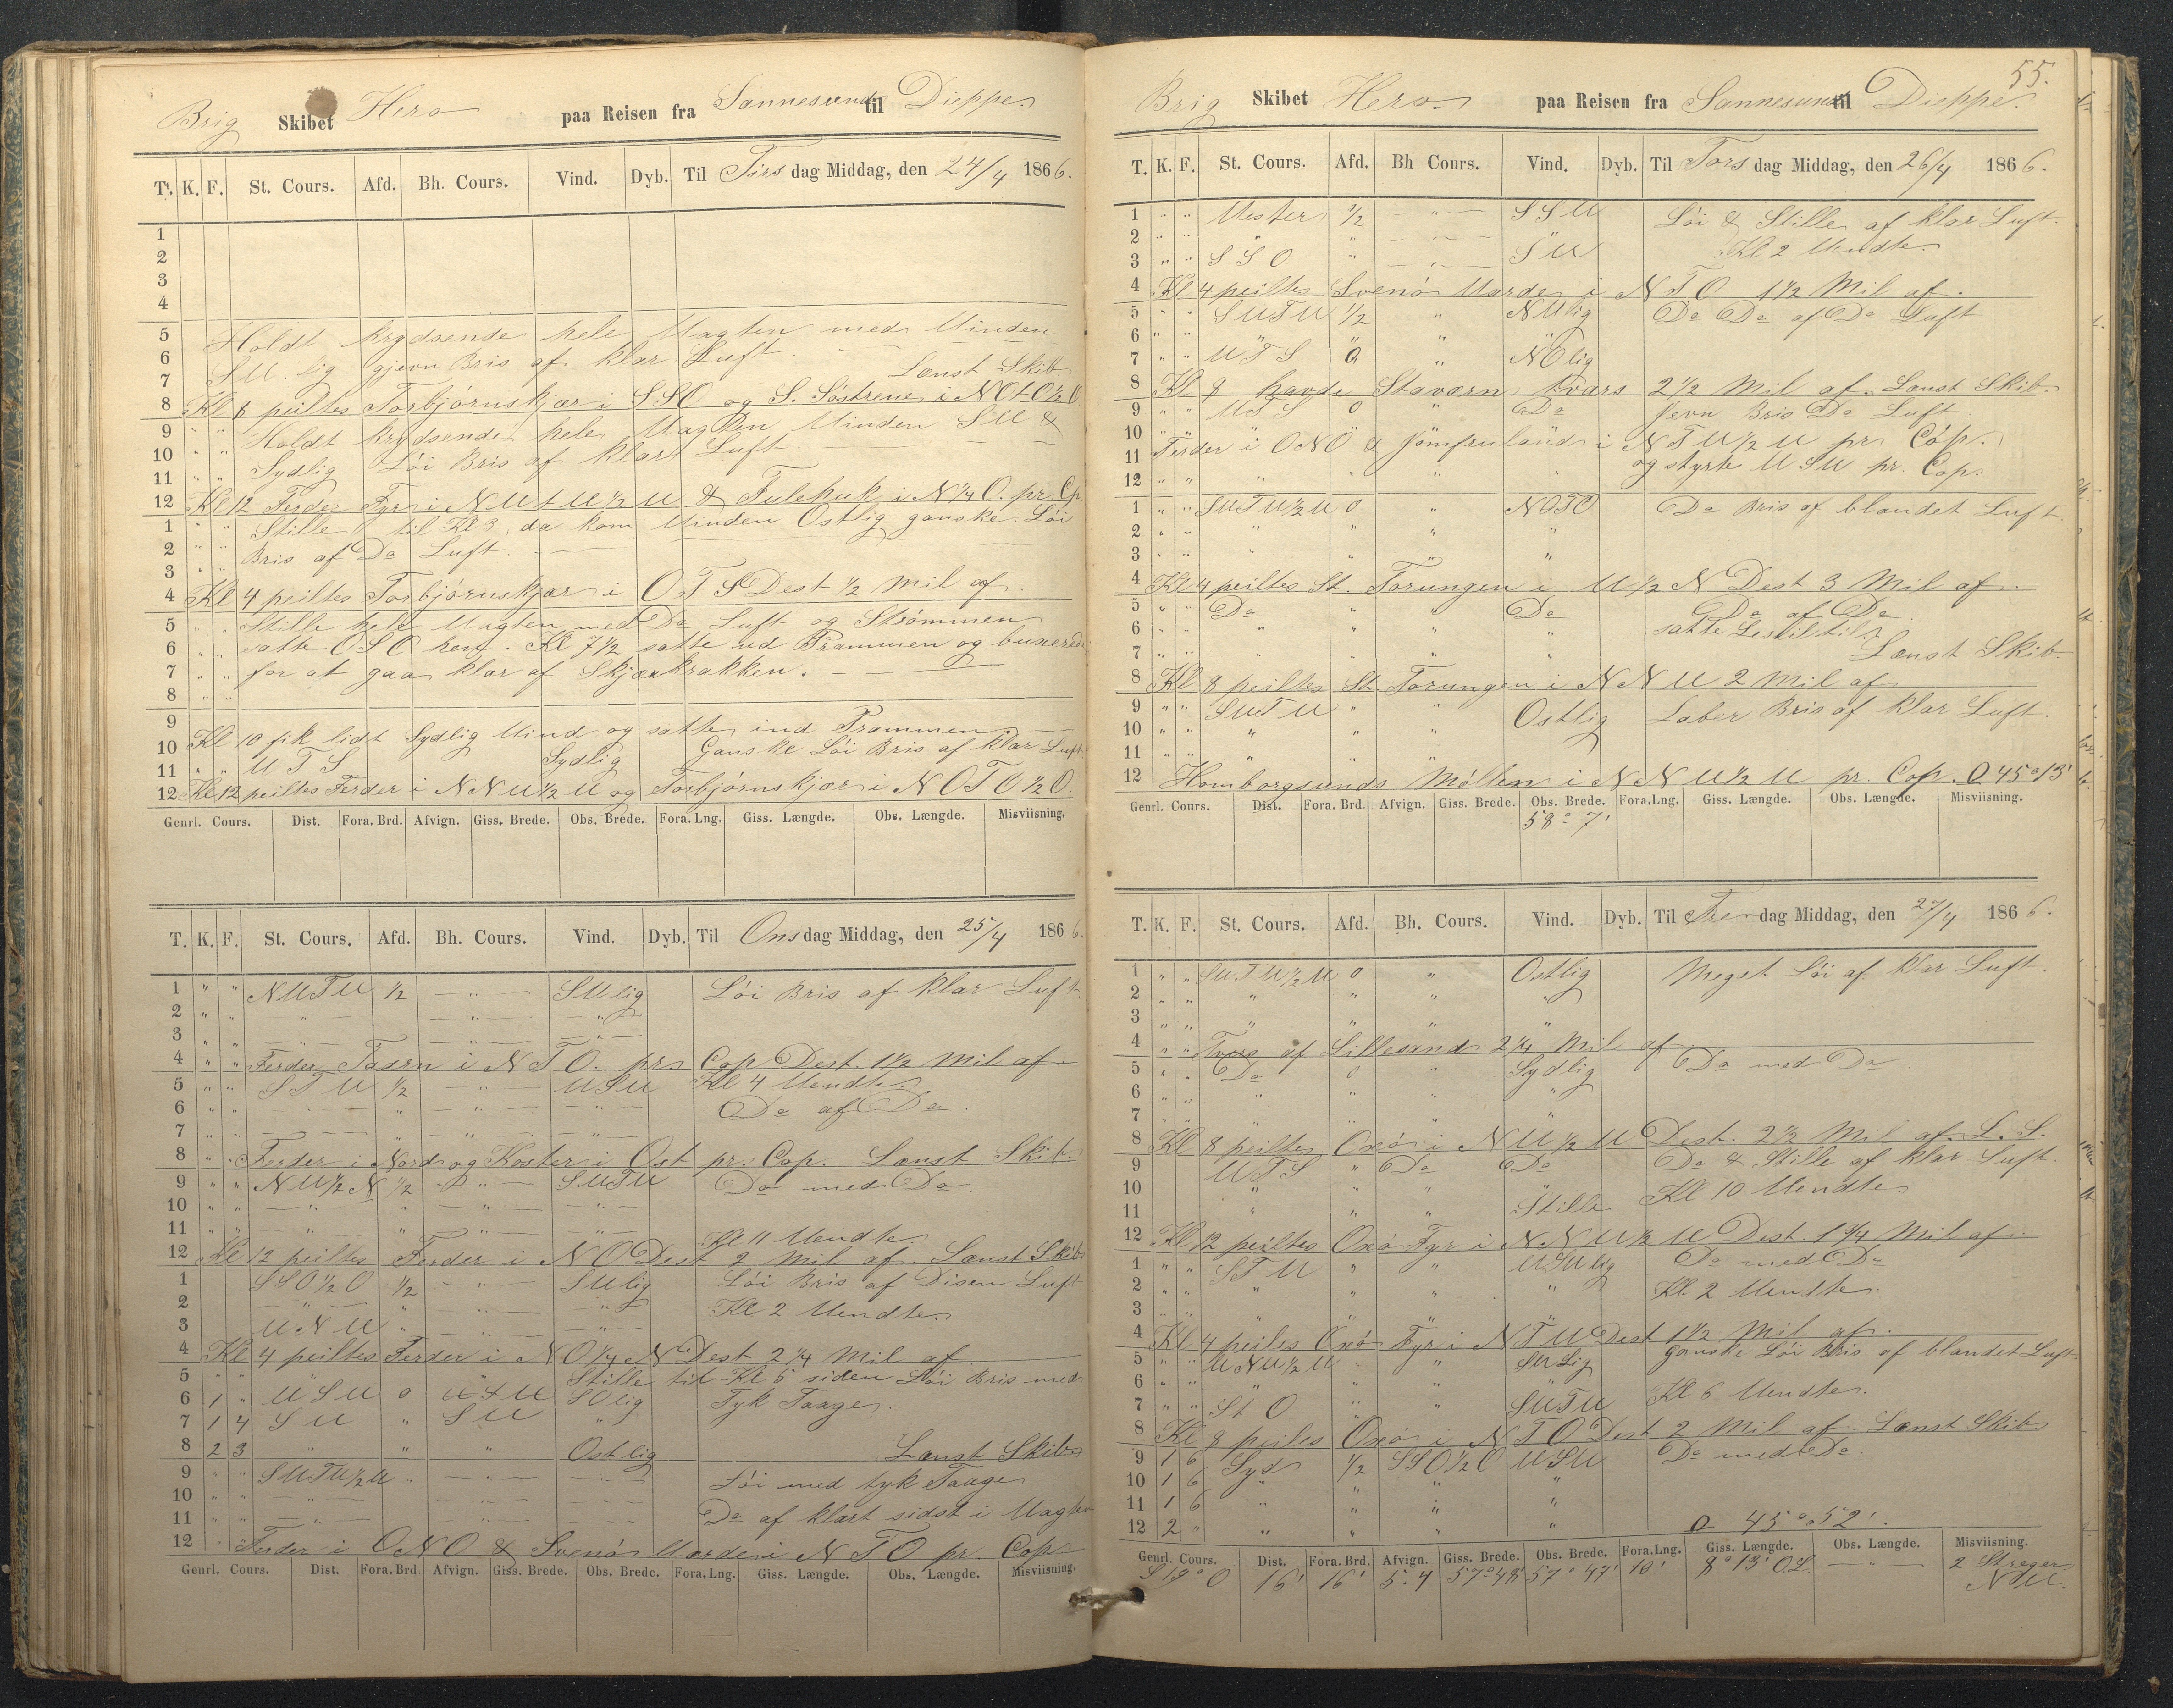 Brig Skibet Hero paa Reisen fra Sannesund til Dieppe
T. K. F. St. Cours. Afd. Bh. Cours. Vind. Dyb. Til Tirsdag Middag, den 24/4 1866.
1
2
3
4
5 Holdt krydsende hele Vagten med Vinden
6 SV.lig gjevn Bris af klar Luft.
7 Lænst Skib
8 Kl 8 peiltes Torbjörnskjær i SSO og S. Söstrene i NOtO½O
9 " " Holdt krydsende hele Vagten Vinden SV &
10 " " Sydlig Löi Bris af klar Luft
11 " "
12 Kl 12 Ferder Fyr i NVtV½V & Fulehuk i N¼O. pr Cp
1 " " Stille til Kl 3, da kom Vinden Ostlig ganske Löi
2 " " Bris af Do Luft.
3 " "
4 Kl 4 peiltes Torbjörnskjær i OTS Dest ½ Mil af.
5 " Stille hele Vagten med Do Luft og Strömmen
6 " " satte OSO hen. Kl 7½ satte ud Prammen og buxerede
7 " " for at gaa klar af Skjærkrakken.
8 " "
9
10 Kl 10 fik lidt Sydlig Vind og satte ind Prammen
11 " " VTS Sydlig Ganske Löi Bris af klar Luft
12 Kl 12 peiltes Ferder i NNV½V og Torbjörnskjær i NOTO½O.
Genrl. Cours. Dist. Fora. Brd. Afvign. Giss. Brede. Obs. Brede. Fora. Lng. Giss. Længde. Obs. Længde. Misviisning.
T. K. F. St. Cours. Afd. Bh. Cours. Vind. Dyb. Til Onsdag Middag, den 25/4 1866.
1 " " NVTV ½ — " — SVlig Löi Bris af klar Luft
2 " " — " — — " — — " —
3 " " — " — — " — — " —
4 " " Ferder Taarn i NTO. pr Cop Dest. 1½ Mil af
5 " " STV ½ " VSV Kl 4 Vendte
6 " " — " — " — " — — " — Do af Do.
7 " " — " — " — " — — " —
8 " " Ferder i Nord og Koster i Ost pr. Cop. Lænst Skib
9 " " NV½N ½ — " — SVTV Do med Do.
10 " " — " — " — " — — " —
11 " " — " — " — " — — " — Kl 11 Vendte
12 Kl 12 peiltes Ferder i NO Dest 2 Mil af. Lænst Skib
1 SSO½O ½ — " — SVlig Löi Bris af Disen Luft
2 — " — " — " — — " — Kl 2 Vendte
3 VNV " — " — — " —
4 Kl 4 peiltes Ferder i NO¼N Dest 2¼ Mil af
5 " " " Stille til Kl 5 siden Löi Bris med
6 1 " VSV 0 VSV SOlig Tyk Taage.
7 1 4 SV " SV "
8 2 3 " " " Ostlig Lænst Skib
9 " " SVTV½V " — " — — " — Löi med tyk Taage
10 " " — " — — " — — " —
11 " " — " — — " — — " — Do af klart sidst i Vagten
12 " Ferder i ONO & Svenör Varde i NTO pr. Cop
Genrl. Cours. Dist. Fora. Brd. Afvign. Giss. Brede. Obs. Brede. Fora. Lng. Giss. Længde. Obs. Længde. Misviisning.
55.
Brig Skibet Hero paa Reisen fra Sannesund til Dieppe.
T. K. F. St. Cours. Afd. Bh Cours. Vind. Dyb. Til Torsdag Middag, den 26/4 1866.
1 " " Vester ½ — " — SSV Löi & Stille af klar Luft.
2 " " " " — " — " Kl 2 Vendte
3 " " SSO " — " — SV
4 Kl 4 peiltes Svenör Varde i NTO 1½ Mil af.
5 " " SVTV ½ " NVlig Do Do af Do Luft
6 " " " " " "
7 " " VTS 0 " NOlig
8 Kl 8 havde Staværn tvars 2½ Mil af. Lænst Skib
9 " " VTS 0 " Do Jevn Bris Do Luft
10 " " " " " "
11 Ferder i ONO & Jomfruland i NTV½V pr Cop.
12 " " " " " " og styrte VSV pr. Cop.
1 " " SVTV½V 0 " NOTO Do Bris af blandet Luft
2 " " " " " "
3 " " " " " "
4 Kl 4 peiltes St. Torungen i V½N Dest 3 Mil af.
5 " " Do " " Do Do af Do
6 " " " " " " satte Leseil til
7 " " " " " " Lænst Skib
8 Kl 8 peiltes St. Torungen i NNV 2 Mil af
9 " " SVTV " " Ostlig Laber Bris af klar Luft.
10 " " " " "
11 " "
12 Homborgsunds Möllen i NNV½V pr. Cop. O 45° 13'
Genrl. Cours. Dist. Fora. Brd. Afvign. Giss. Brede. Obs. Brede. Fora. Lng. Giss. Længde. Obs. Længde. Misviisning.
58° 7'
T. K. F. St. Cours. Afd. Bh. Cours. Vind. Dyb. Til Fredag Middag, den 27/4 1866.
1 " " SVTV½V 0 " Ostlig Meget Löi af klar Luft.
2 " " " " " "
3 " " " " " "
4 " " Tvers af Lillesand 2¼ Mil af
5 " " Do 0 " Sydlig Do med Do.
6 " " " " " "
7 " " " " " "
8 Kl 8 peiltes Oxö i NV½V Dest. 2½ Mil af. L. S.
9 VTS " Do Do Do & Stille af klar Luft.
10 " " " Kl 10 Vendte
11 " " " Stille
12 Kl 12 peiltes Oxö Fyr i NNV½V Dest. 1¾ Mil af.
1 " " STV " " VSVlig Do med Do
2 " " " " " " Kl 2 Vendte
3 " " " " " "
4 Kl 4 peiles Oxö Fyr i NTV Dest 1½ Mil af.
5 " " VNV½V " SVlig ganske Löi Bris af blandet Luft
6 " " " " " " Kl 6 Vendte.
7 " " StO " " SVTV
8 Kl 8 peiles Oxö i NTO Dest 2 Mil af. Lænst Skib
9 1 6 Syd ½ SSO½O VSV Do med Do.
10 1 6 " " " "
11 1 6 " " " "
12 2 " " " " " O 45° 52'.
Genrl. Cours. Dist. Fora. Brd. Afvign. Giss. Brede. Obs. Brede. Fora. Lng. Giss. Længde. Obs. Længde. Misviisning.
S 19° O 16' 16' 5.4 57° 48' 57° 47' 10' 8° 13' OL — " — 2 Streger
NV.